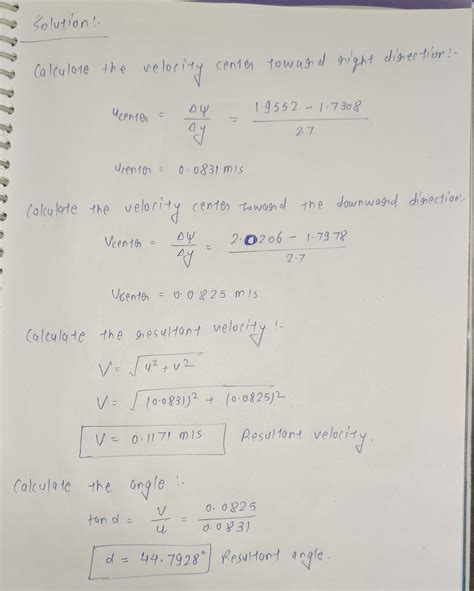 Solution:-
Calculate the velocity center toward right direction:-
ucenter = Δψ / Δy = 1.9552 - 1.7308 / 2.7
ucenter = 0.0831 m/s
Calculate the velocity center toward the downward direction:-
Vcenter = Δψ / Δy = 2.0206 - 1.7978 / 2.7
Vcenter = 0.0825 m/s
Calculate the resultant velocity:-
V = √u² + v²
V = √(0.0831)² + (0.0825)²
V = 0.1171 m/s Resultant velocity.
Calculate the angle:-
tan d = V / u = 0.0825 / 0.0831
d = 44.7928° Resultant angle.